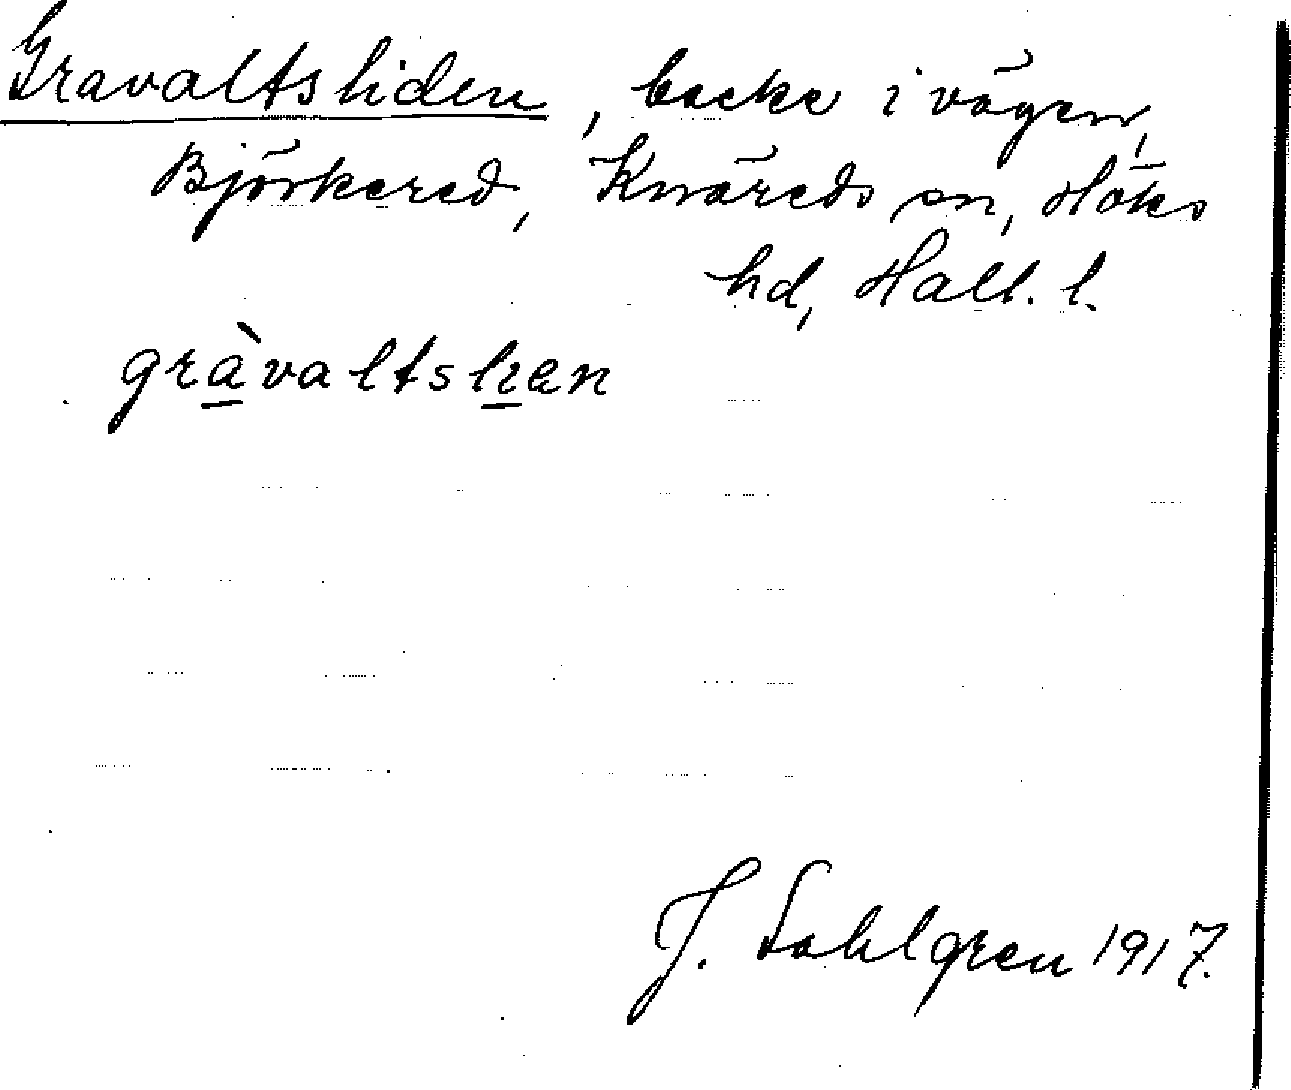 Gravaltsliden, backe i vägen,
Björkered, Knäreds sn, Höks
hd, Hall. l.
gràvaltslien
J. Sahlgren 1917.